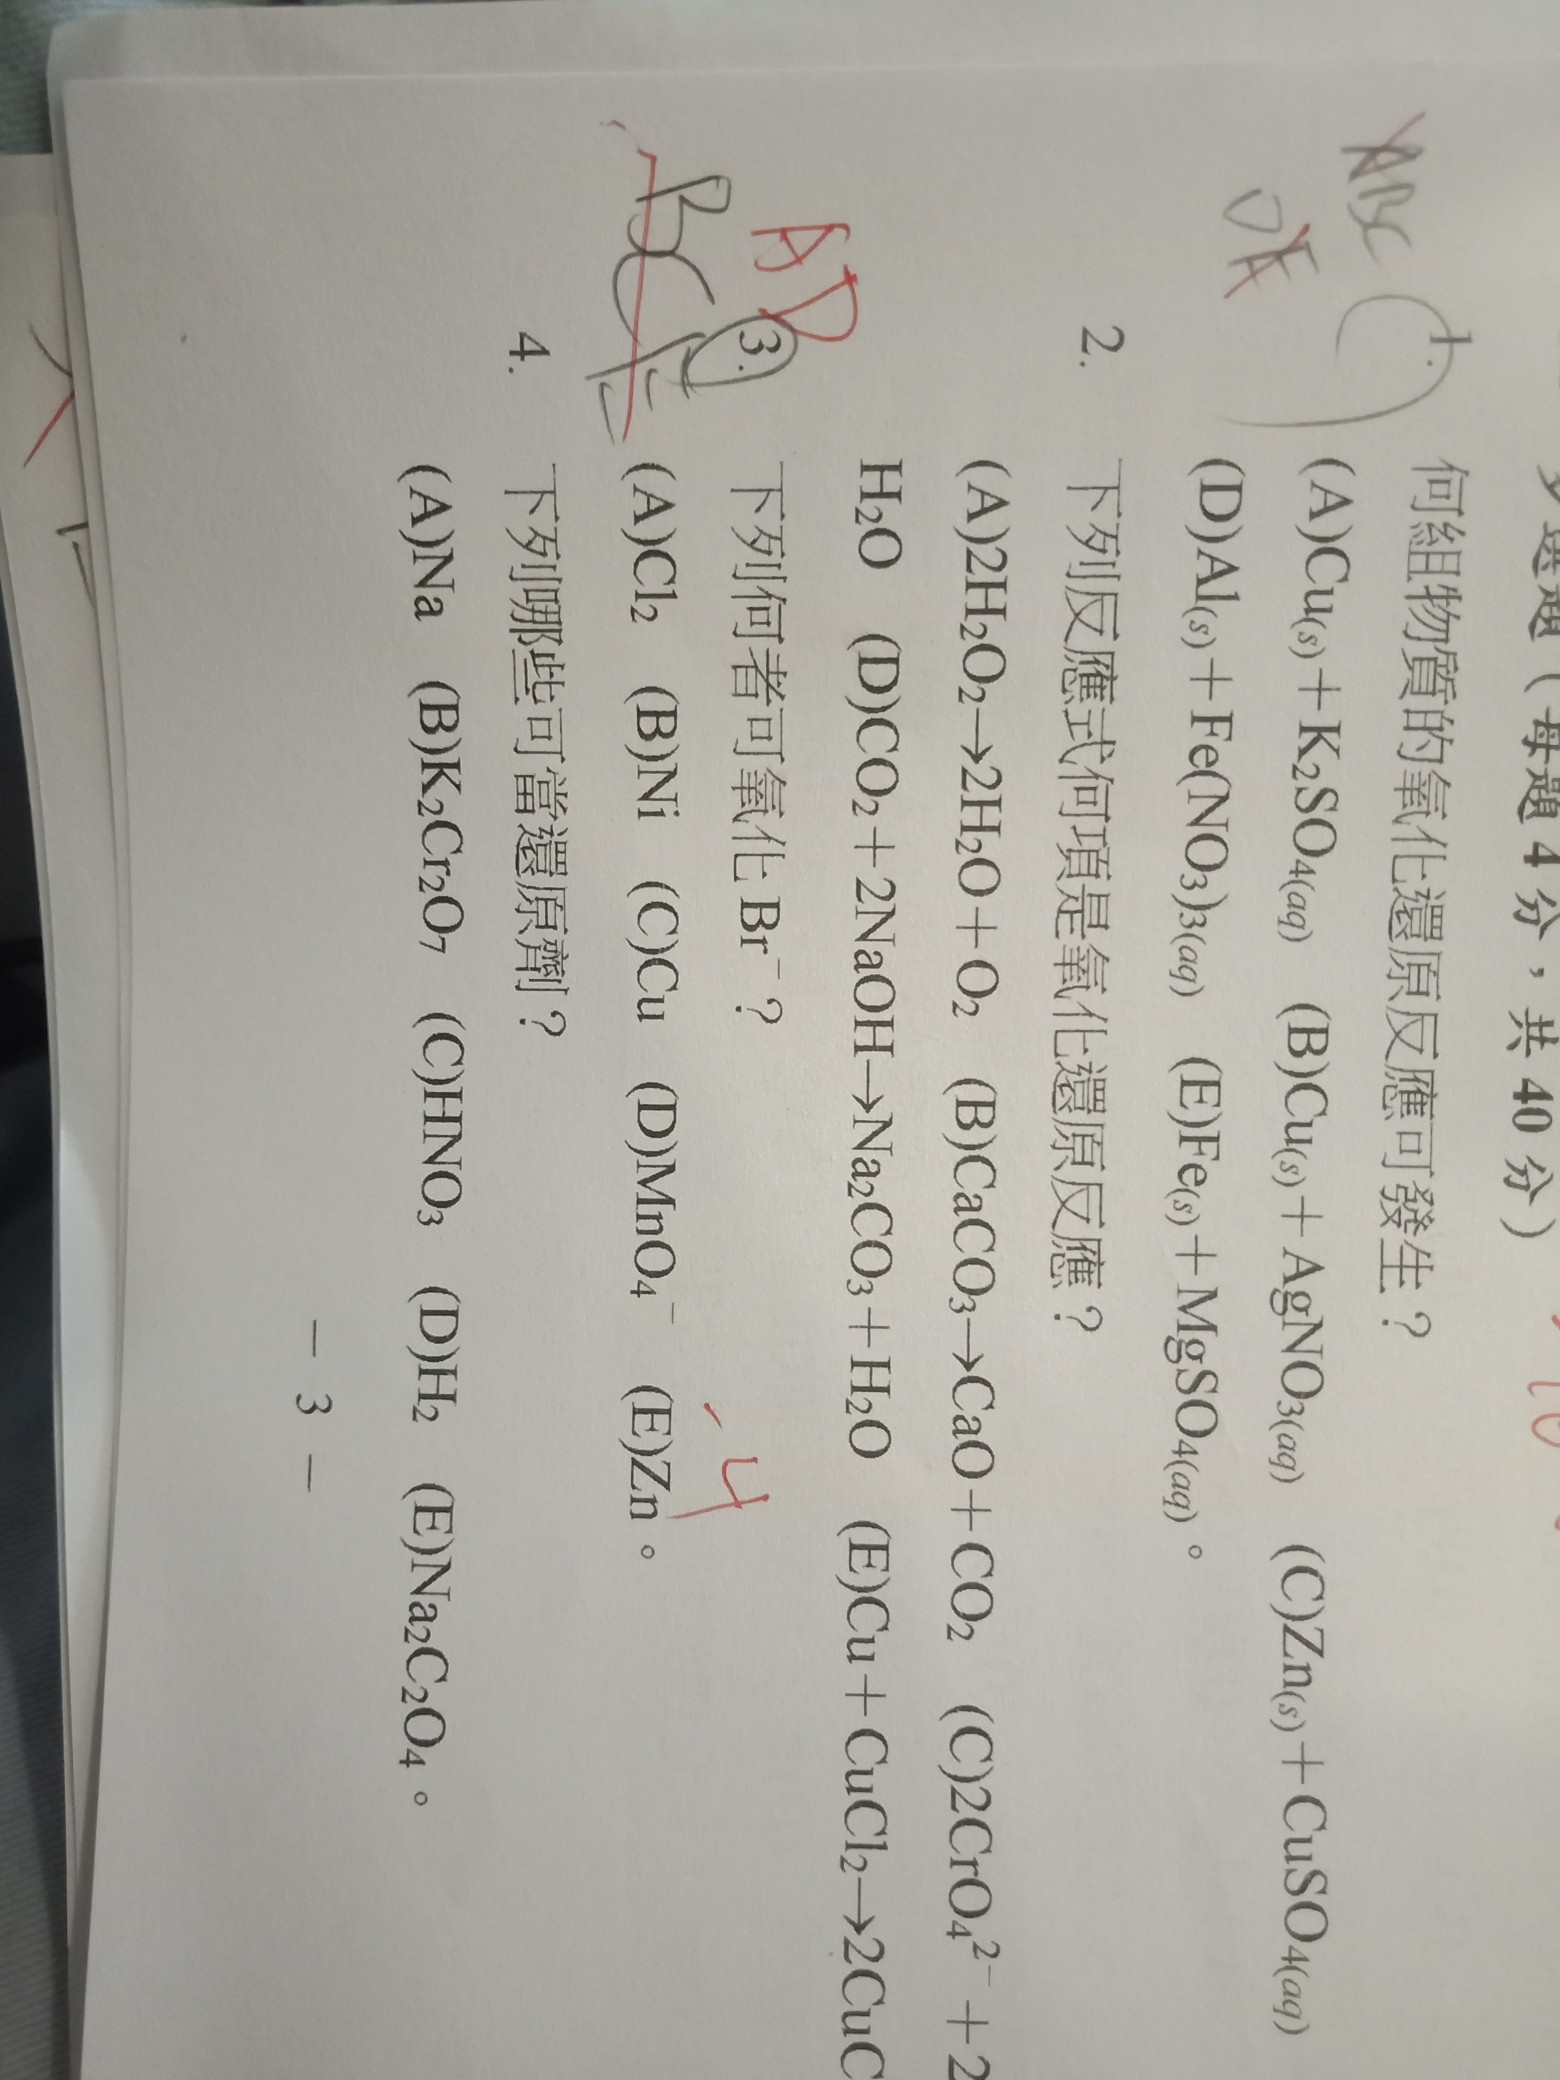 多選題(每題 4 分，共 40 分)
1. 何組物質的氧化還原反應可發生？
(A)Cu(s)＋K2SO4(aq) (B)Cu(s)＋AgNO3(aq) (C)Zn(s)＋CuSO4(aq)
(D)Al(s)＋Fe(NO3)3(aq) (E)Fe(s)＋MgSO4(aq)。
ABC
2. 下列反應式何項是氧化還原反應？
(A)2H2O2→2H2O＋O2 (B)CaCO3→CaO＋CO2 (C)2CrO4²⁻＋2
H2O (D)CO2＋2NaOH→Na2CO3＋H2O (E)Cu＋CuCl2→2CuC
AD
3. 下列何者可氧化 Br⁻？
(A)Cl2 (B)Ni (C)Cu (D)MnO4⁻ (E)Zn。
BCE
4
4. 下列哪些可當還原劑？
(A)Na (B)K2Cr2O7 (C)HNO3 (D)H2 (E)Na2C2O4。
－ 3 －